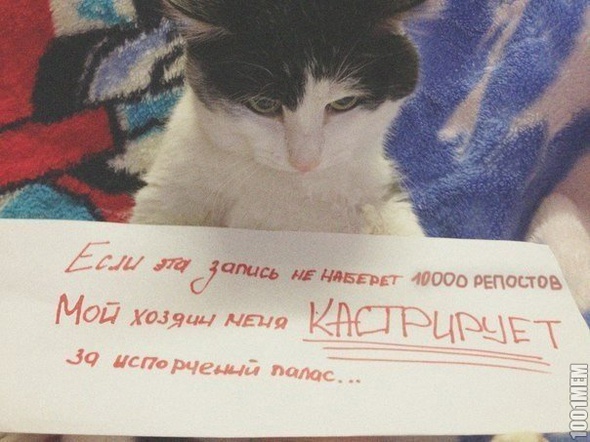 Если эта запись не наберет 10000 репостов
Мой хозяин меня КАСТРИРУЕТ
за испорчений палас...
1001MEM